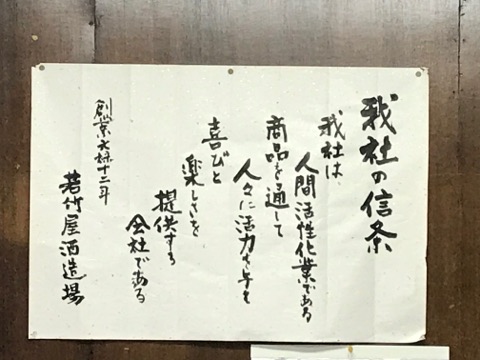 我社の信条
我社は、
人間活性化業である
商品を通して
人々に活力を与え
喜びと
楽しさを
提供する
会社である
創業元禄十二年
若竹屋酒造場